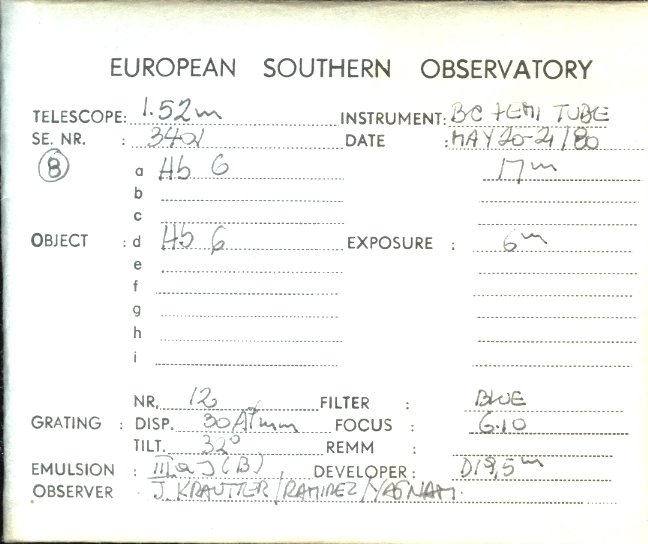 EUROPEAN SOUTHERN OBSERVATORY
TELESCOPE: 1.52m INSTRUMENT: BC +EMI TUBE
SE. NR. : 3401 DATE : MAY 20-21/80
(8) a Hb 6 17m
b
c
OBJECT : d Hb 6 EXPOSURE : 6m
e
f
g
h
i
NR. 12 FILTER : BLUE
GRATING : DISP. 30A/mm FOCUS : 6.10
TILT. 32° REMM :
EMULSION : IIIaJ(B) DEVELOPER: D19,5m
OBSERVER : J. KRAUTTER/RAMIREZ/YAGNAM.